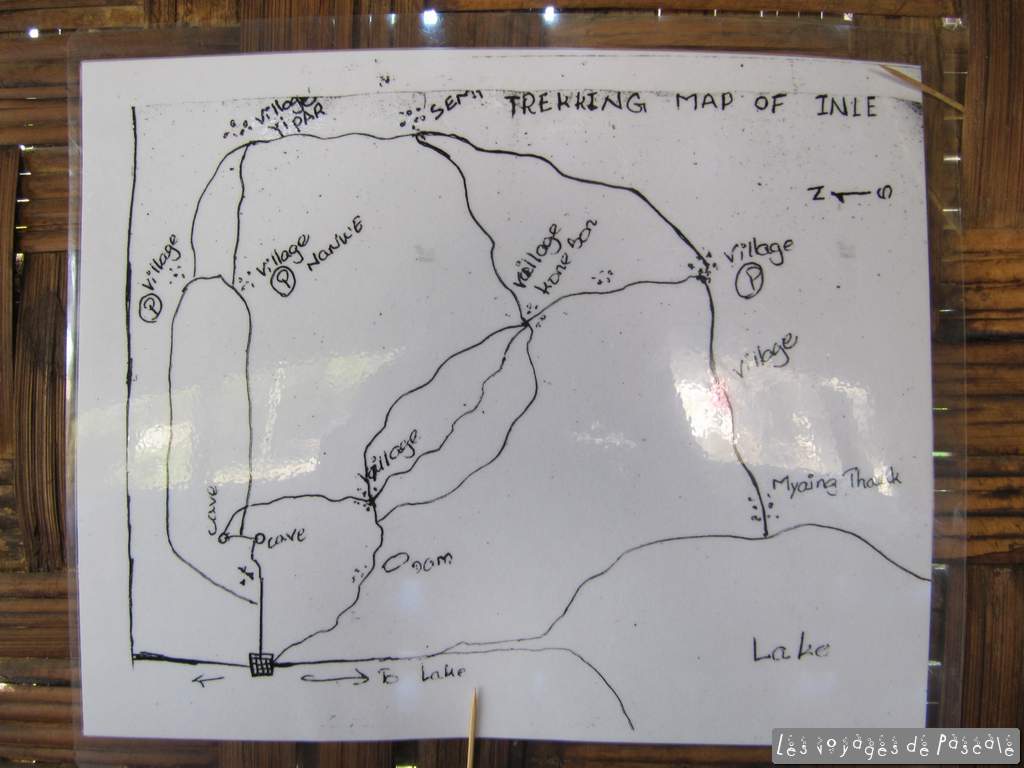 TREKKING MAP OF INLE
Village
YIPAR
N S
Village
P
Village
NANKIE
P
Village
Kone Son
Village
P
Village
Village
Myaing Thauk
cave
cave
Dam
Lake
To Lake
Les voyages de Pascale